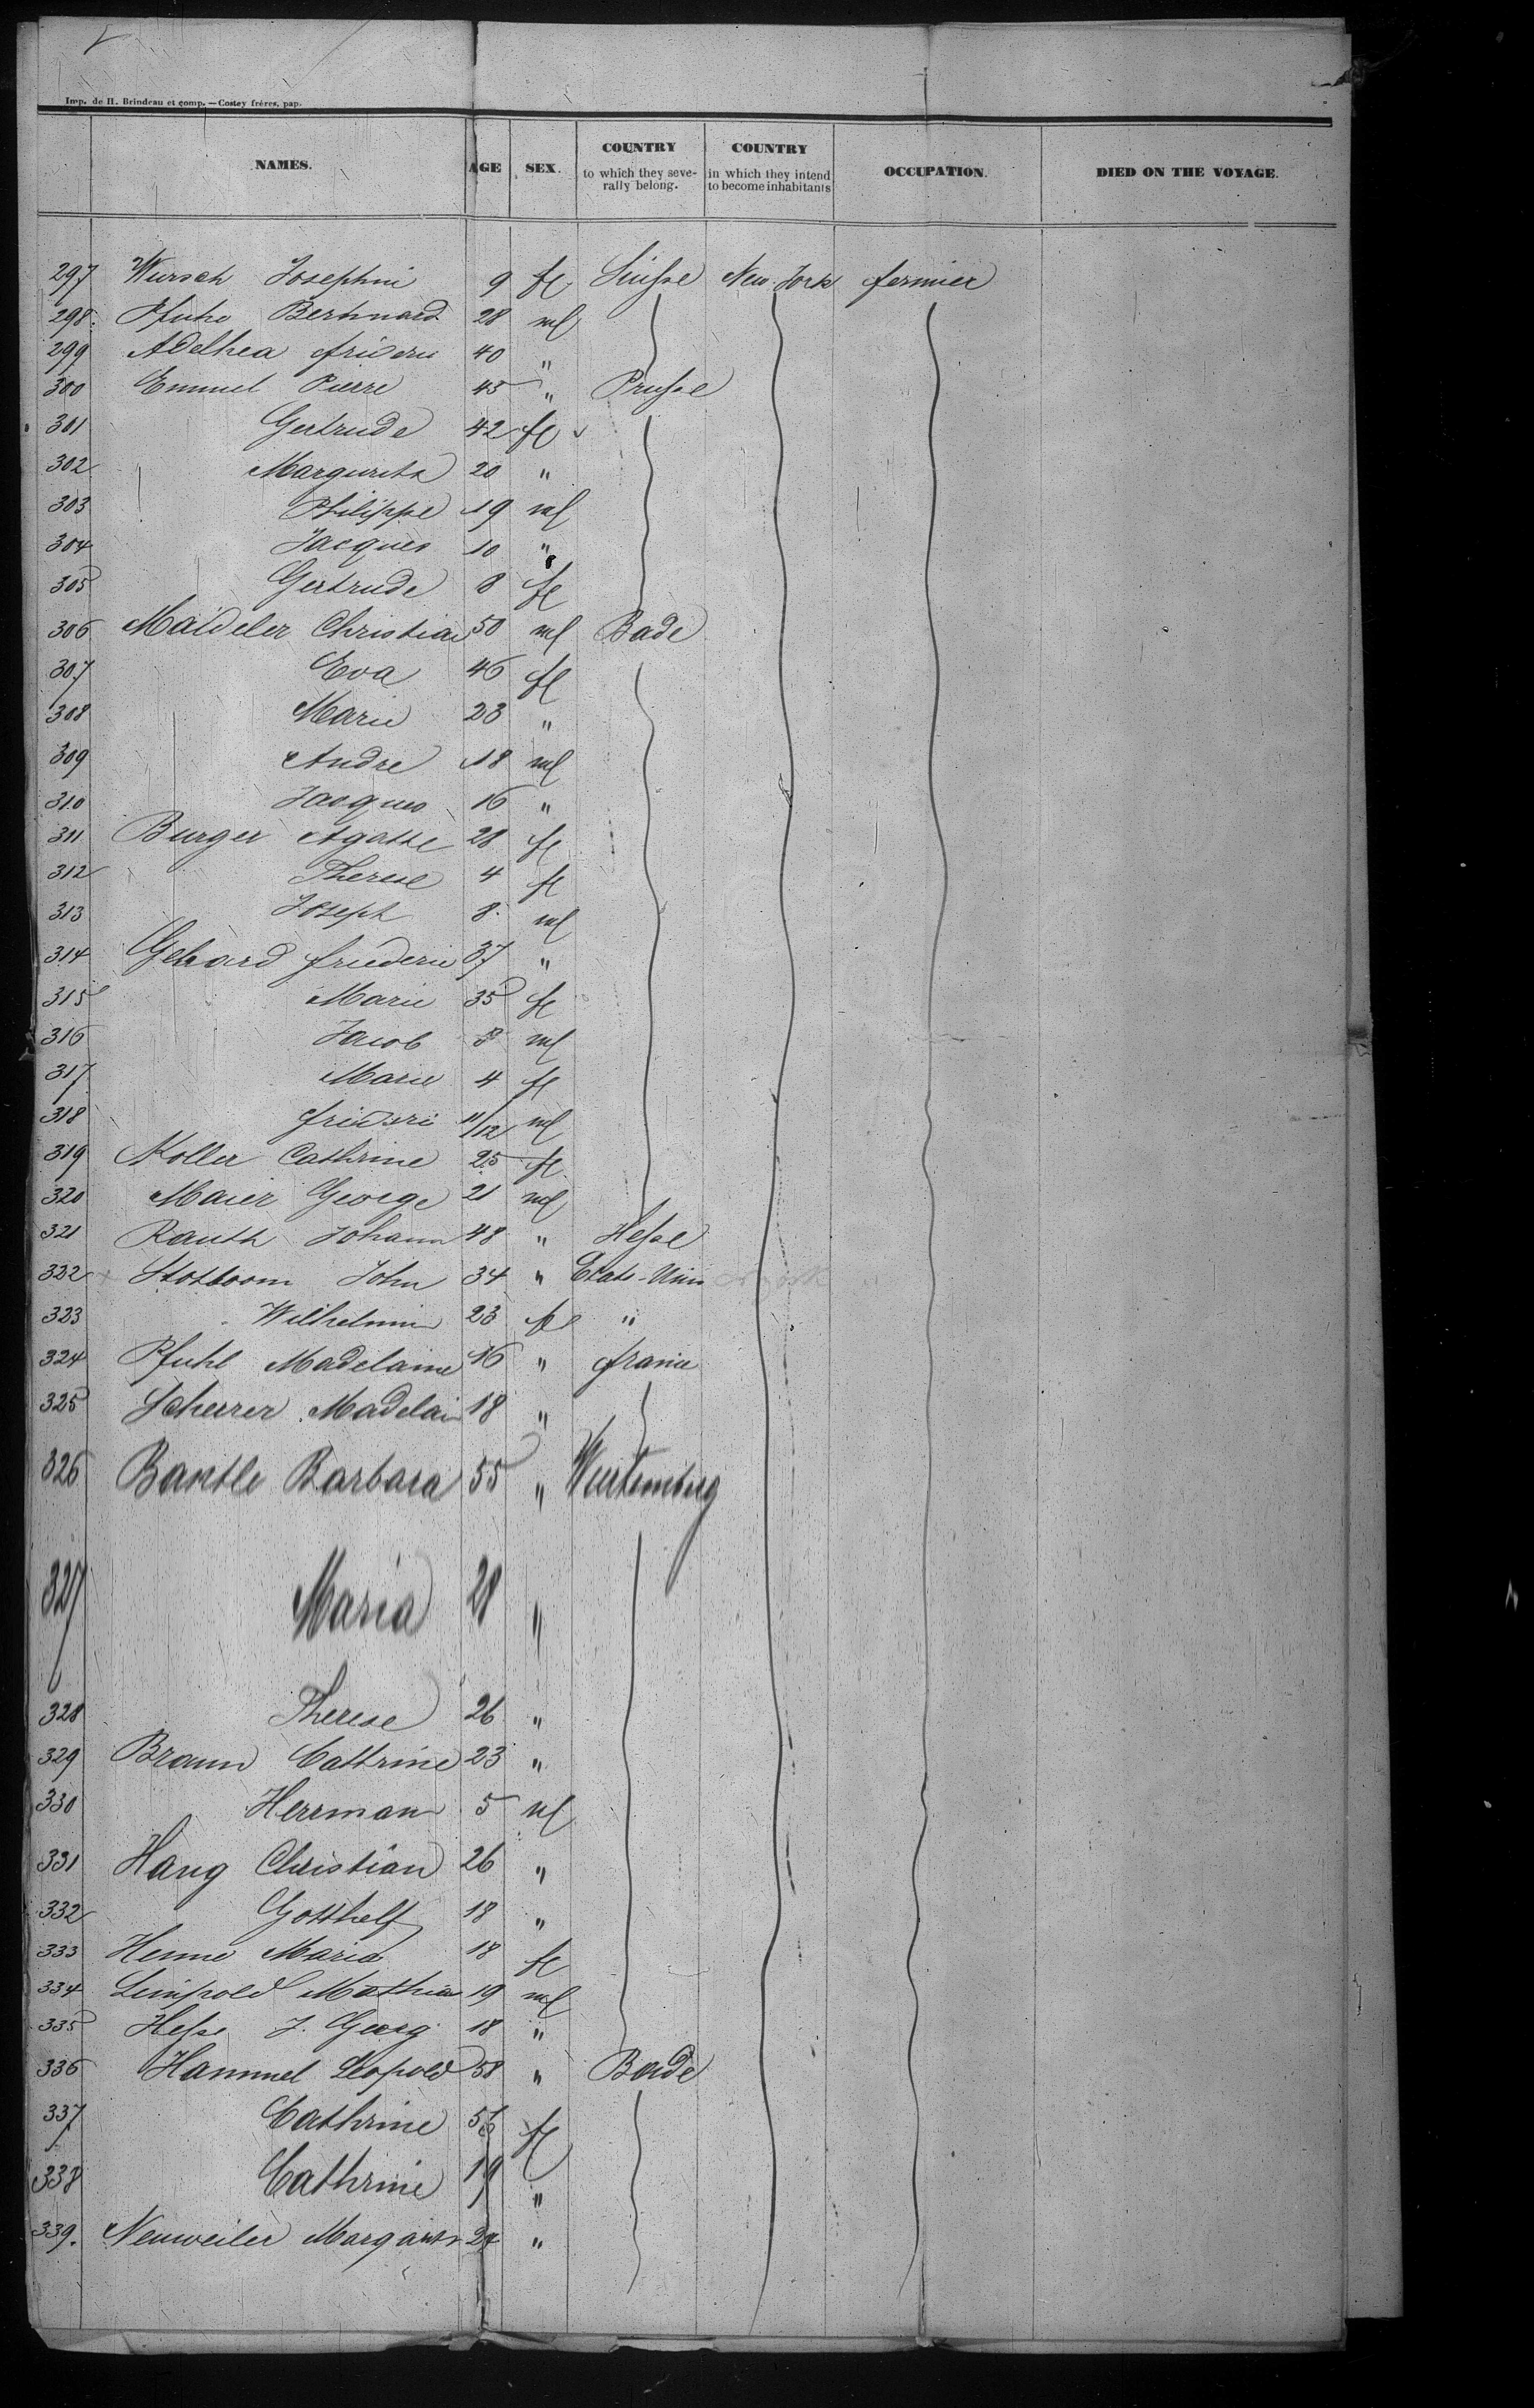 Imp. de H. Brindeau et comp. — Costey frères, pap.
NAMES. AGE SEX. COUNTRY to which they severally belong. COUNTRY in which they intend to become inhabitants OCCUPATION. DIED ON THE VOYAGE.
297 Wursch Josephin 9 fl Suisse New-York fermier
298 Bernhard 28 ml
299 Adelhea frideri 40 "
300 Emmel Pierre 45 " Prusse
301 Gertrude 42 fl
302 Margurita 20 "
303 Philippe 19 ml
304 Jacques 10 "
305 Gertrude 8 fl
306 Maideler Christian 50 ml Bade
307 Eva 46 fl
308 Marie 23 "
309 Andre 18 ml
310 Jacques 16 "
311 Burger Agathe 28 fl
312 Therese 4 fl
313 Joseph 8 ml
314 Gehard friederi 37 "
315 Marie 35 fl
316 Jacob 8 ml
317 Marie 4 fl
318 frideri 11/12 ml
319 Koller Cathrine 25 fl
320 Maier George 21 ml
321 Rauth Johann 48 " Hesse
322 John 34 " Etats-Unis
323 Wilhelmin 23 fl "
324 Pfuhl Madelaine 16 " france
325 Scherrer Madelain 18 "
326 Bantle Barbara 55 " Wurtemberg
327 Maria 28 "
328 Therese 26 "
329 Braun Cathrine 23 "
330 Herrman 5 ml
331 Haug Christian 26 "
332 Gotthelf 18 "
333 Henne Maria 18 fl
334 Leinpold Mathias 19 ml
335 Hesse J. Georg 18 "
336 Hammel Leopold 58 " Bade
337 Cathrine fl
338 Cathrine 19 "
339. Neuweiler "